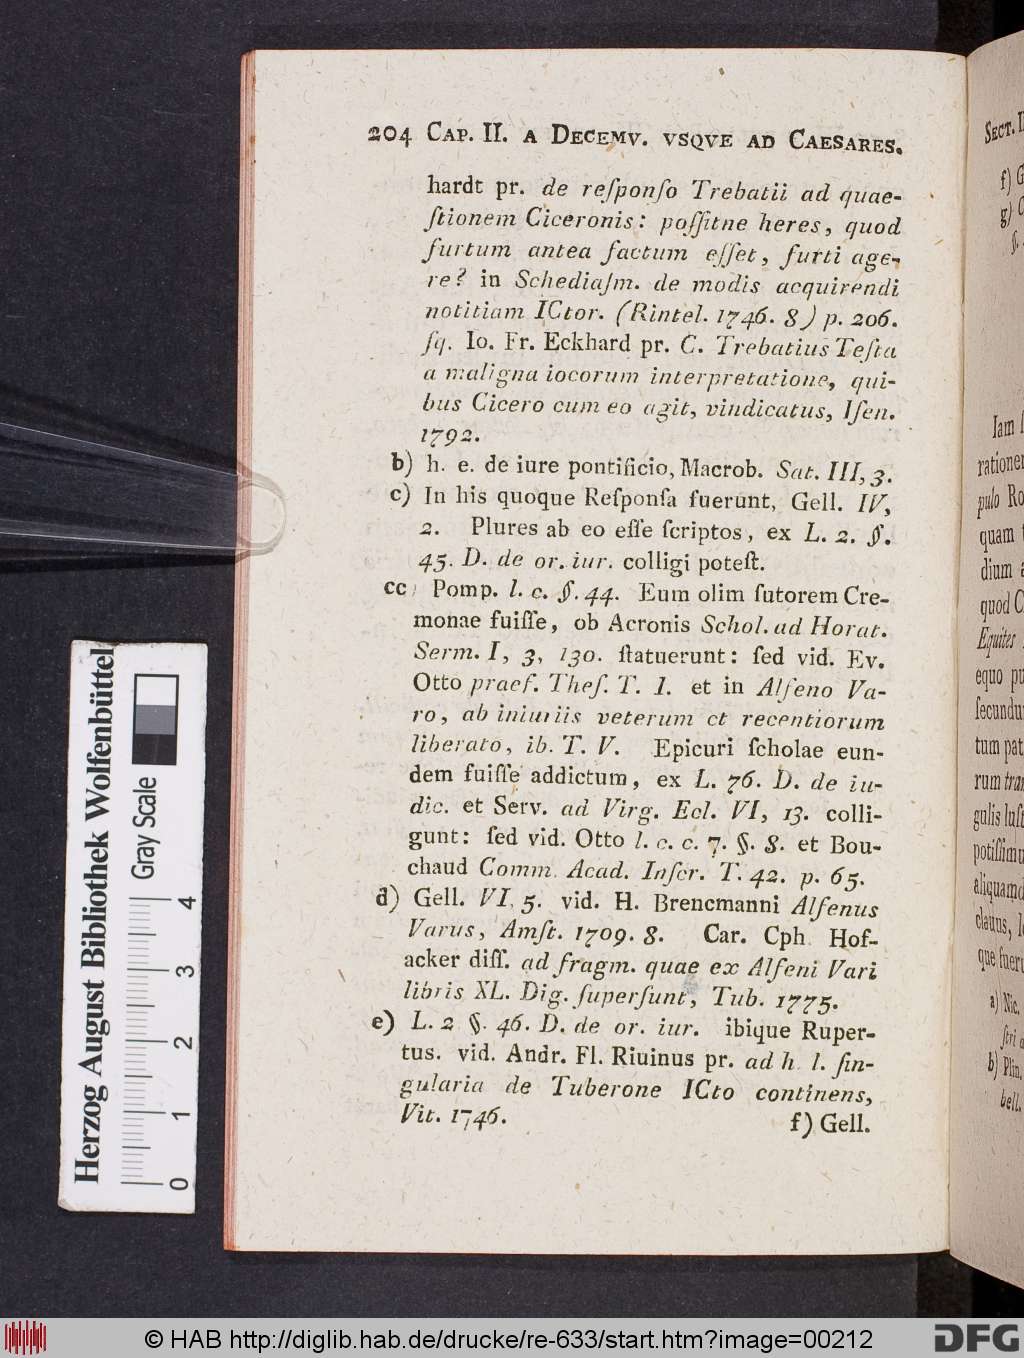 204 Cap. II. a Decemv. vsqve ad Caesares.
hardt pr. de reſponſo Trebatii ad quae-
ſtionem Ciceronis: poſſitne heres, quod
furtum antea factum eſſet, furti age-
re? in Schediaſm. de modis acquirendi
notitiam ICtor. (Rintel. 1746. 8) p. 206.
ſq. Io. Fr. Eckhard pr. C. Trebatius Teſta
a maligna iocorum interpretatione, qui-
bus Cicero cum eo agit, vindicatus, Iſen.
1792.
b) h. e. de iure pontificio, Macrob. Sat. III, 3.
c) In his quoque Reſponſa fuerunt, Gell. IV,
2. Plures ab eo eſſe ſcriptos, ex L. 2. §.
45. D. de or. iur. colligi poteſt.
cc) Pomp. l. c. §. 44. Eum olim ſutorem Cre-
monae fuiſſe, ob Acronis Schol. ad Horat.
Serm. I, 3, 130. ſtatuerunt: ſed vid. Ev.
Otto praef. Theſ. T. I. et in Alfeno Va-
ro, ab iniuriis veterum et recentiorum
liberato, ib. T. V. Epicuri ſcholae eun-
dem fuiſſe addictum, ex L. 76. D. de iu-
dic. et Serv. ad Virg. Ecl. VI, 13. colli-
gunt: ſed vid. Otto l. c. c. 7. §. 8. et Bou-
chaud Comm. Acad. Inſcr. T. 42. p. 65.
d) Gell. VI, 5. vid. H. Brencmanni Alfenus
Varus, Amſt. 1709. 8. Car. Cph. Hof-
acker diſſ. ad fragm. quae ex Alfeni Vari
libris XL. Dig. ſuperſunt, Tub. 1775.
e) L. 2 §. 46. D. de or. iur. ibique Ruper-
tus. vid. Andr. Fl. Riuinus pr. ad h. l. ſin-
gularia de Tuberone ICto continens,
Vit. 1746.
f) Gell.
Sect. I
f) G
g) C
§.
Iam
rationem
pulo Ro
quam
dium a
quod C
Equites
equo pu
ſecundu
tum pat
rum tran
gulis luſt
potiſſimu
aliquamd
clauus,
que fueru
a) Nic.
ſtri
b) Plin.
bell.
Herzog August Bibliothek Wolfenbüttel
Gray Scale
0 1 2 3 4
© HAB http://diglib.hab.de/drucke/re-633/start.htm?image=00212
DFG